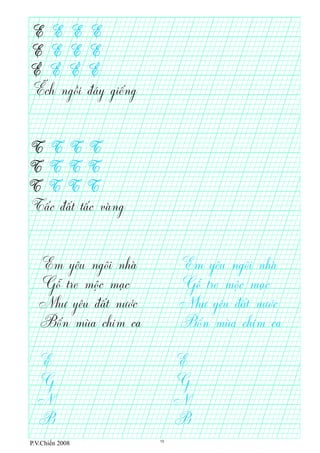 E E E E
E E E E
Ê Ê Ê Ê
Ếch ngồi đáy giếng
T T T T
T T T T
T T T T
Tấc đất tấc vàng
Em yêu ngôi nhà Em yêu ngôi nhà
Gỗ tre mộc mạc Gỗ tre mộc mạc
Như yêu đất nước Như yêu đất nước
Bốn mùa chim ca Bốn mùa chim ca
E E
G G
N N
B B
P.V.Chiến 2008